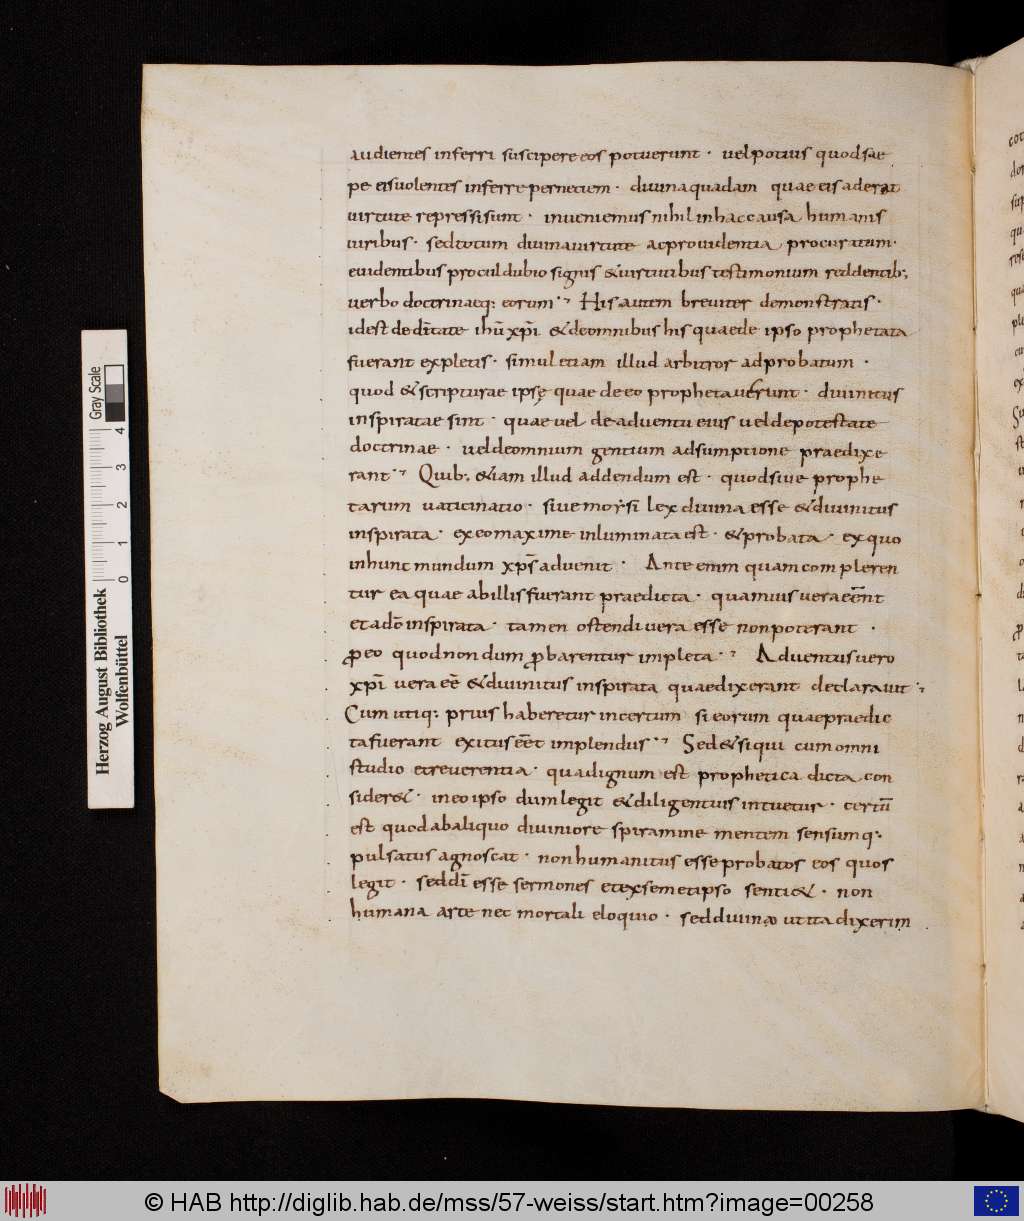 audientes inferri suscipere eos potuerunt · vel potius quod sae
pe eis volentes inferre perneciem · divina quadam quae eis aderat
virtute repressi sunt · inveniemus nihil in hac causa humanis
viribus · sed totum divina virtute ac providentia procuratum ·
evidentibus procul dubio signis &virtutibus testimonium reddentib;
verbo doctrinaeq; eorum · Hisautem breviter demonstratis ·
idest de dītate ihū xpī &deomnibus his quaede ipso prophetata
fuerant expletis · simul etiam illud arbitror adprobatum ·
quod &scripturae ipsę quae de eo prophetaverunt · divinitus
inspiratae sint · quae vel de adventu eius vel de potestate
doctrinae · vel deomnium gentium adsumptione praedixe
rant · Quib; &iam illud addendum est · quod sive prophe
tarum vaticinatio · sive moysi lex divina esse &divinitus
inspirata · ex eo maxime inluminata est · &probata · ex quo
in hunc mundum xps̄ advenit · Ante enim quam compleren
tur ea quae ab illis fuerant praedicta · quamvis vera eēnt
et adō inspirata · tamen ostendi vera esse non poterant ·
ꝓeo quod nondum ꝓbarentur impleta · Adventus vero
xpī vera eē &divinitus inspirata quae dixerant declaravit ·
Cum utiq; prius haberetur incertum si eorum quae praedic
ta fuerant exitus eēt implendus · Sed &siqui cum omni
studio et reverentia · qua dignum est prophetica dicta con
sider& · in eo ipso dum legit &diligentius intuetur · certū
est quod ab aliquo diviniore spiramine mentem sensumq;
pulsatus agnoscat · non humanitus esse probatos eos quos
legit · sed dī esse sermones et ex semetipso senti& · non
humana arte nec mortali eloquio · sed divino ut ita dixerim
Gray Scale
4
3
2
1
0
Herzog August Bibliothek
Wolfenbüttel
© HAB http://diglib.hab.de/mss/57-weiss/start.htm?image=00258